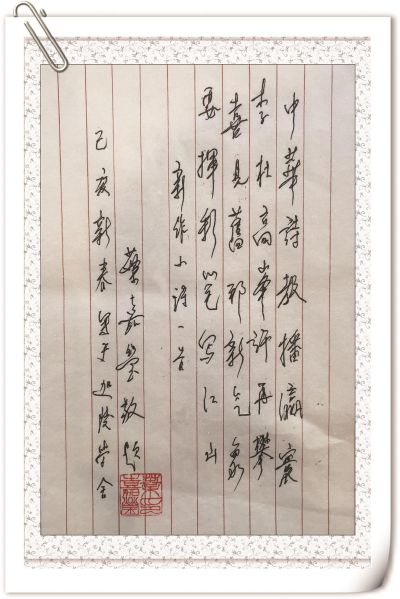 中華詩教播瀛寰
李杜高峯許再攀
喜見舊邦新气象
要揮彩筆寫江山
新作小詩一首
葉嘉瑩敬題
己亥新春寫于迦陵學舍